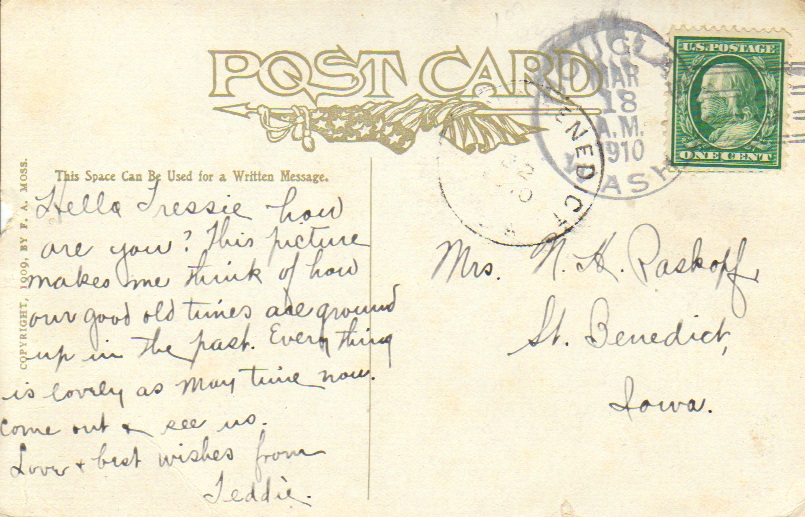 POST CARD
U.S. POSTAGE
ONE CENT
MAR
18
A.M.
1910
WASH
BENEDICT
This Space Can Be Used for a Written Message.
COPYRIGHT, 1909, BY F. A. MOSS.
Hello Tressie how
are you? This picture
makes me think of how
our good old times are ground
up in the past. Every thing
is lovely as May time now.
come out & see us.
Love & best wishes from
Teddie.
Mrs. N. H. Raskopf,
St. Benedict,
Iowa.